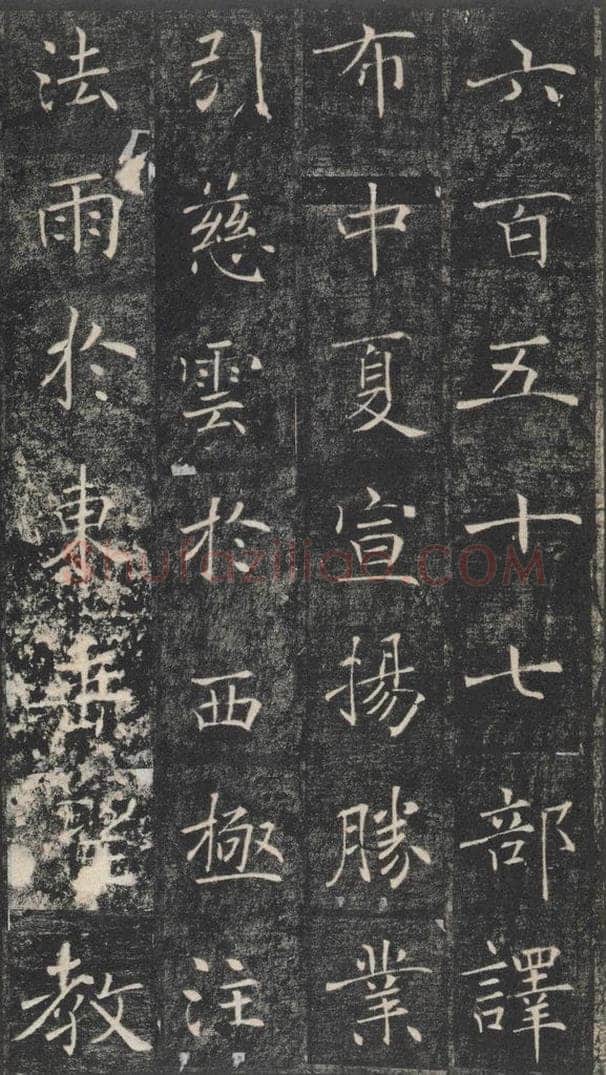 六百五十七部譯
布中夏宣揚勝業
引慈雲於西極注
法雨於東垂聖教
Shufaziliao.COM